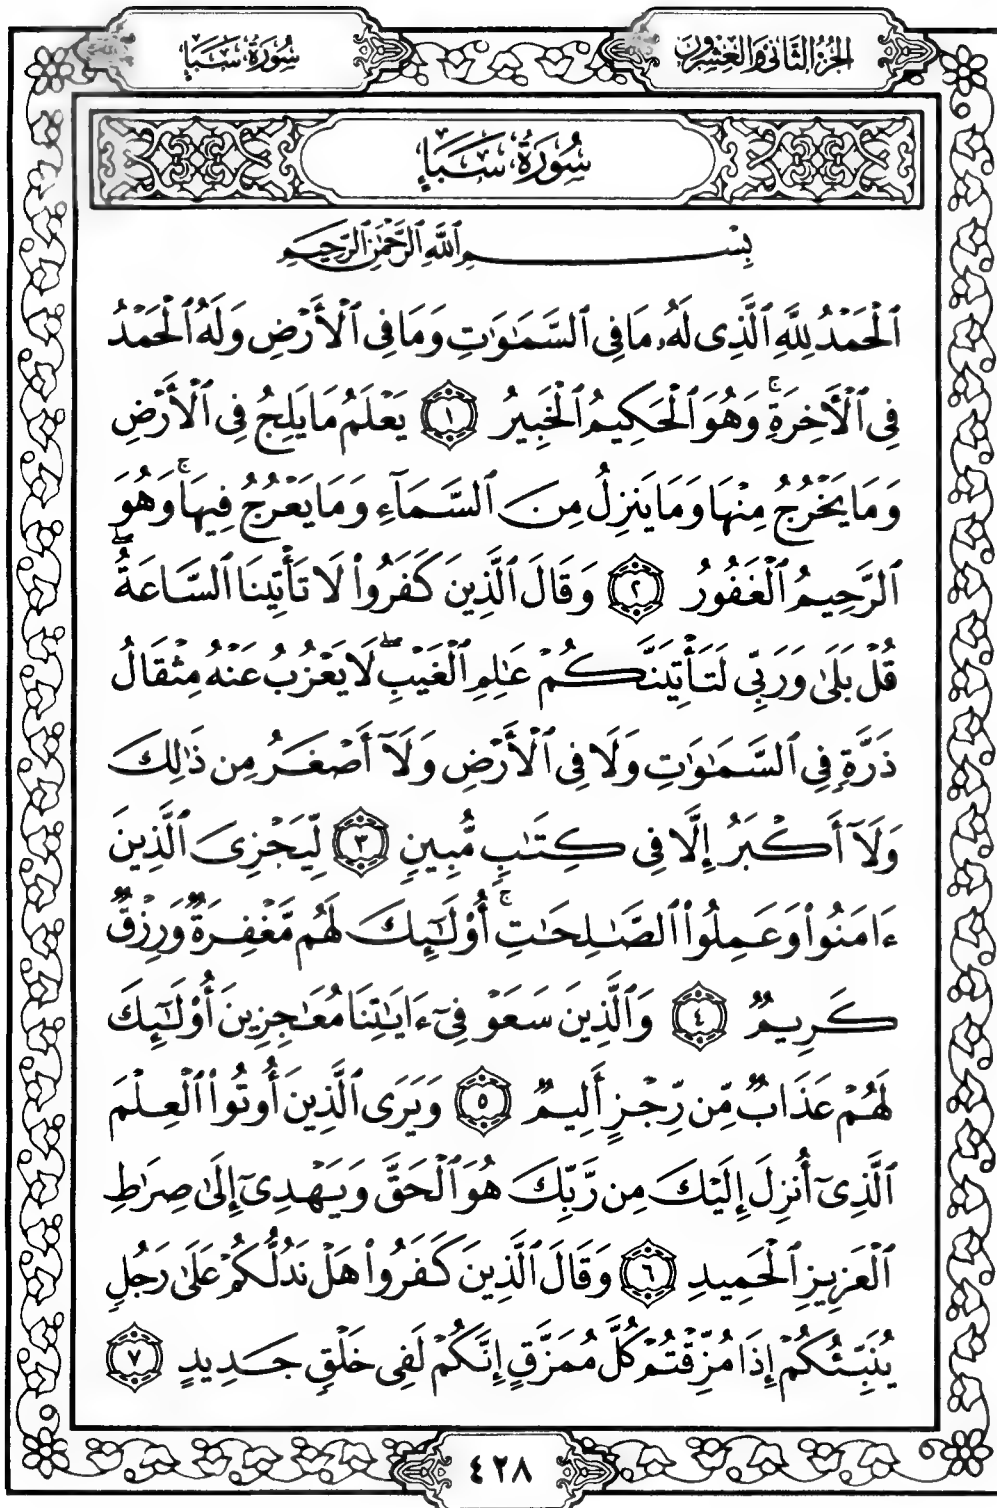 الجزء الثاني والعشرون
سُورَةُ سَبَإٍ
سُورَةُ سَبَإٍ
بِسْمِ ٱللَّهِ ٱلرَّحْمَٰنِ ٱلرَّحِيمِ
ٱلْحَمْدُ لِلَّهِ ٱلَّذِى لَهُۥ مَا فِى ٱلسَّمَٰوَٰتِ وَمَا فِى ٱلْأَرْضِ وَلَهُ ٱلْحَمْدُ
فِى ٱلْأَخِرَةِۚ وَهُوَ ٱلْحَكِيمُ ٱلْخَبِيرُ ١ يَعْلَمُ مَا يَلِجُ فِى ٱلْأَرْضِ
وَمَا يَخْرُجُ مِنْهَا وَمَا يَنزِلُ مِنَ ٱلسَّمَآءِ وَمَا يَعْرُجُ فِيهَاۚ وَهُوَ
ٱلرَّحِيمُ ٱلْغَفُورُ ٢ وَقَالَ ٱلَّذِينَ كَفَرُوا۟ لَا تَأْتِينَا ٱلسَّاعَةُۖ
قُلْ بَلَىٰ وَرَبِّى لَتَأْتِيَنَّكُمْ عَٰلِمِ ٱلْغَيْبِۖ لَا يَعْزُبُ عَنْهُ مِثْقَالُ
ذَرَّةٍ فِى ٱلسَّمَٰوَٰتِ وَلَا فِى ٱلْأَرْضِ وَلَآ أَصْغَرُ مِن ذَٰلِكَ
وَلَآ أَكْبَرُ إِلَّا فِى كِتَٰبٍ مُّبِينٍ ٣ لِّيَجْزِىَ ٱلَّذِينَ
ءَامَنُوا۟ وَعَمِلُوا۟ ٱلصَّٰلِحَٰتِۚ أُو۟لَٰٓئِكَ لَهُم مَّغْفِرَةٌ وَرِزْقٌ
كَرِيمٌ ٤ وَٱلَّذِينَ سَعَوْ فِىٓ ءَايَٰتِنَا مُعَٰجِزِينَ أُو۟لَٰٓئِكَ
لَهُمْ عَذَابٌ مِّن رِّجْزٍ أَلِيمٌ ٥ وَيَرَى ٱلَّذِينَ أُوتُوا۟ ٱلْعِلْمَ
ٱلَّذِىٓ أُنزِلَ إِلَيْكَ مِن رَّبِّكَ هُوَ ٱلْحَقَّ وَيَهْدِىٓ إِلَىٰ صِرَٰطِ
ٱلْعَزِيزِ ٱلْحَمِيدِ ٦ وَقَالَ ٱلَّذِينَ كَفَرُوا۟ هَلْ نَدُلُّكُمْ عَلَىٰ رَجُلٍ
يُنَبِّئُكُمْ إِذَا مُزِّقْتُمْ كُلَّ مُمَزَّقٍ إِنَّكُمْ لَفِى خَلْقٍ جَدِيدٍ ٧
٤٢٨